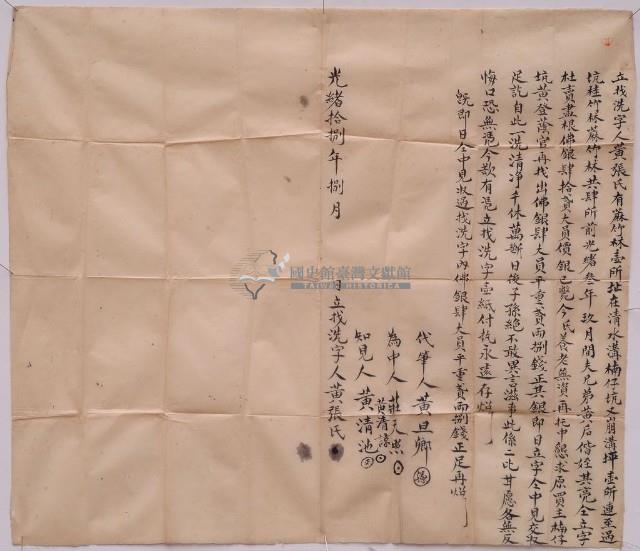 立找洗字人黃張氏有蔴竹林壹所址在清水溝楠仔坑又崩溝坪壹所連至過
坑桂竹林蔴竹林共肆所前光緒叁年玖月間夫兄弟黃八后偕姪其亮仝立字
杜賣盡根佛銀肆拾貳大員價銀已甃今氏養老無資再托中懇求原買主楠仔
坑黃登蔭官再找出佛銀肆大員平重貳両捌錢正其銀即日立字仝中見交收
足訖自此一洗清净千休萬斷日後子孫絕不敢異言滋事此係二比甘愿各無反
悔口恐無憑今欲有憑立找洗字壹紙付执永遠存炤
既即日仝中見收過找洗字內佛銀肆大員平重貳両捌錢正足再炤
代筆人黃旦卿
為中人 莊天照
黃有諒
知見人黃清池
光緒拾捌年捌月 日立找洗字人黃張氏
國史館臺灣文獻館
TAIWAN HISTORICA